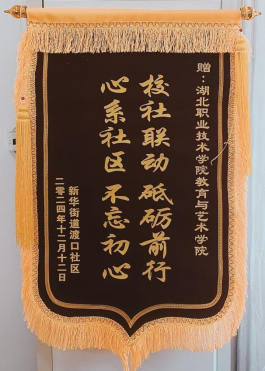 赠：湖北职业技术学院教育与艺术学院
校社联动 砥砺前行
心系社区 不忘初心
新华街道渡口社区
二零二四年十二月十二日